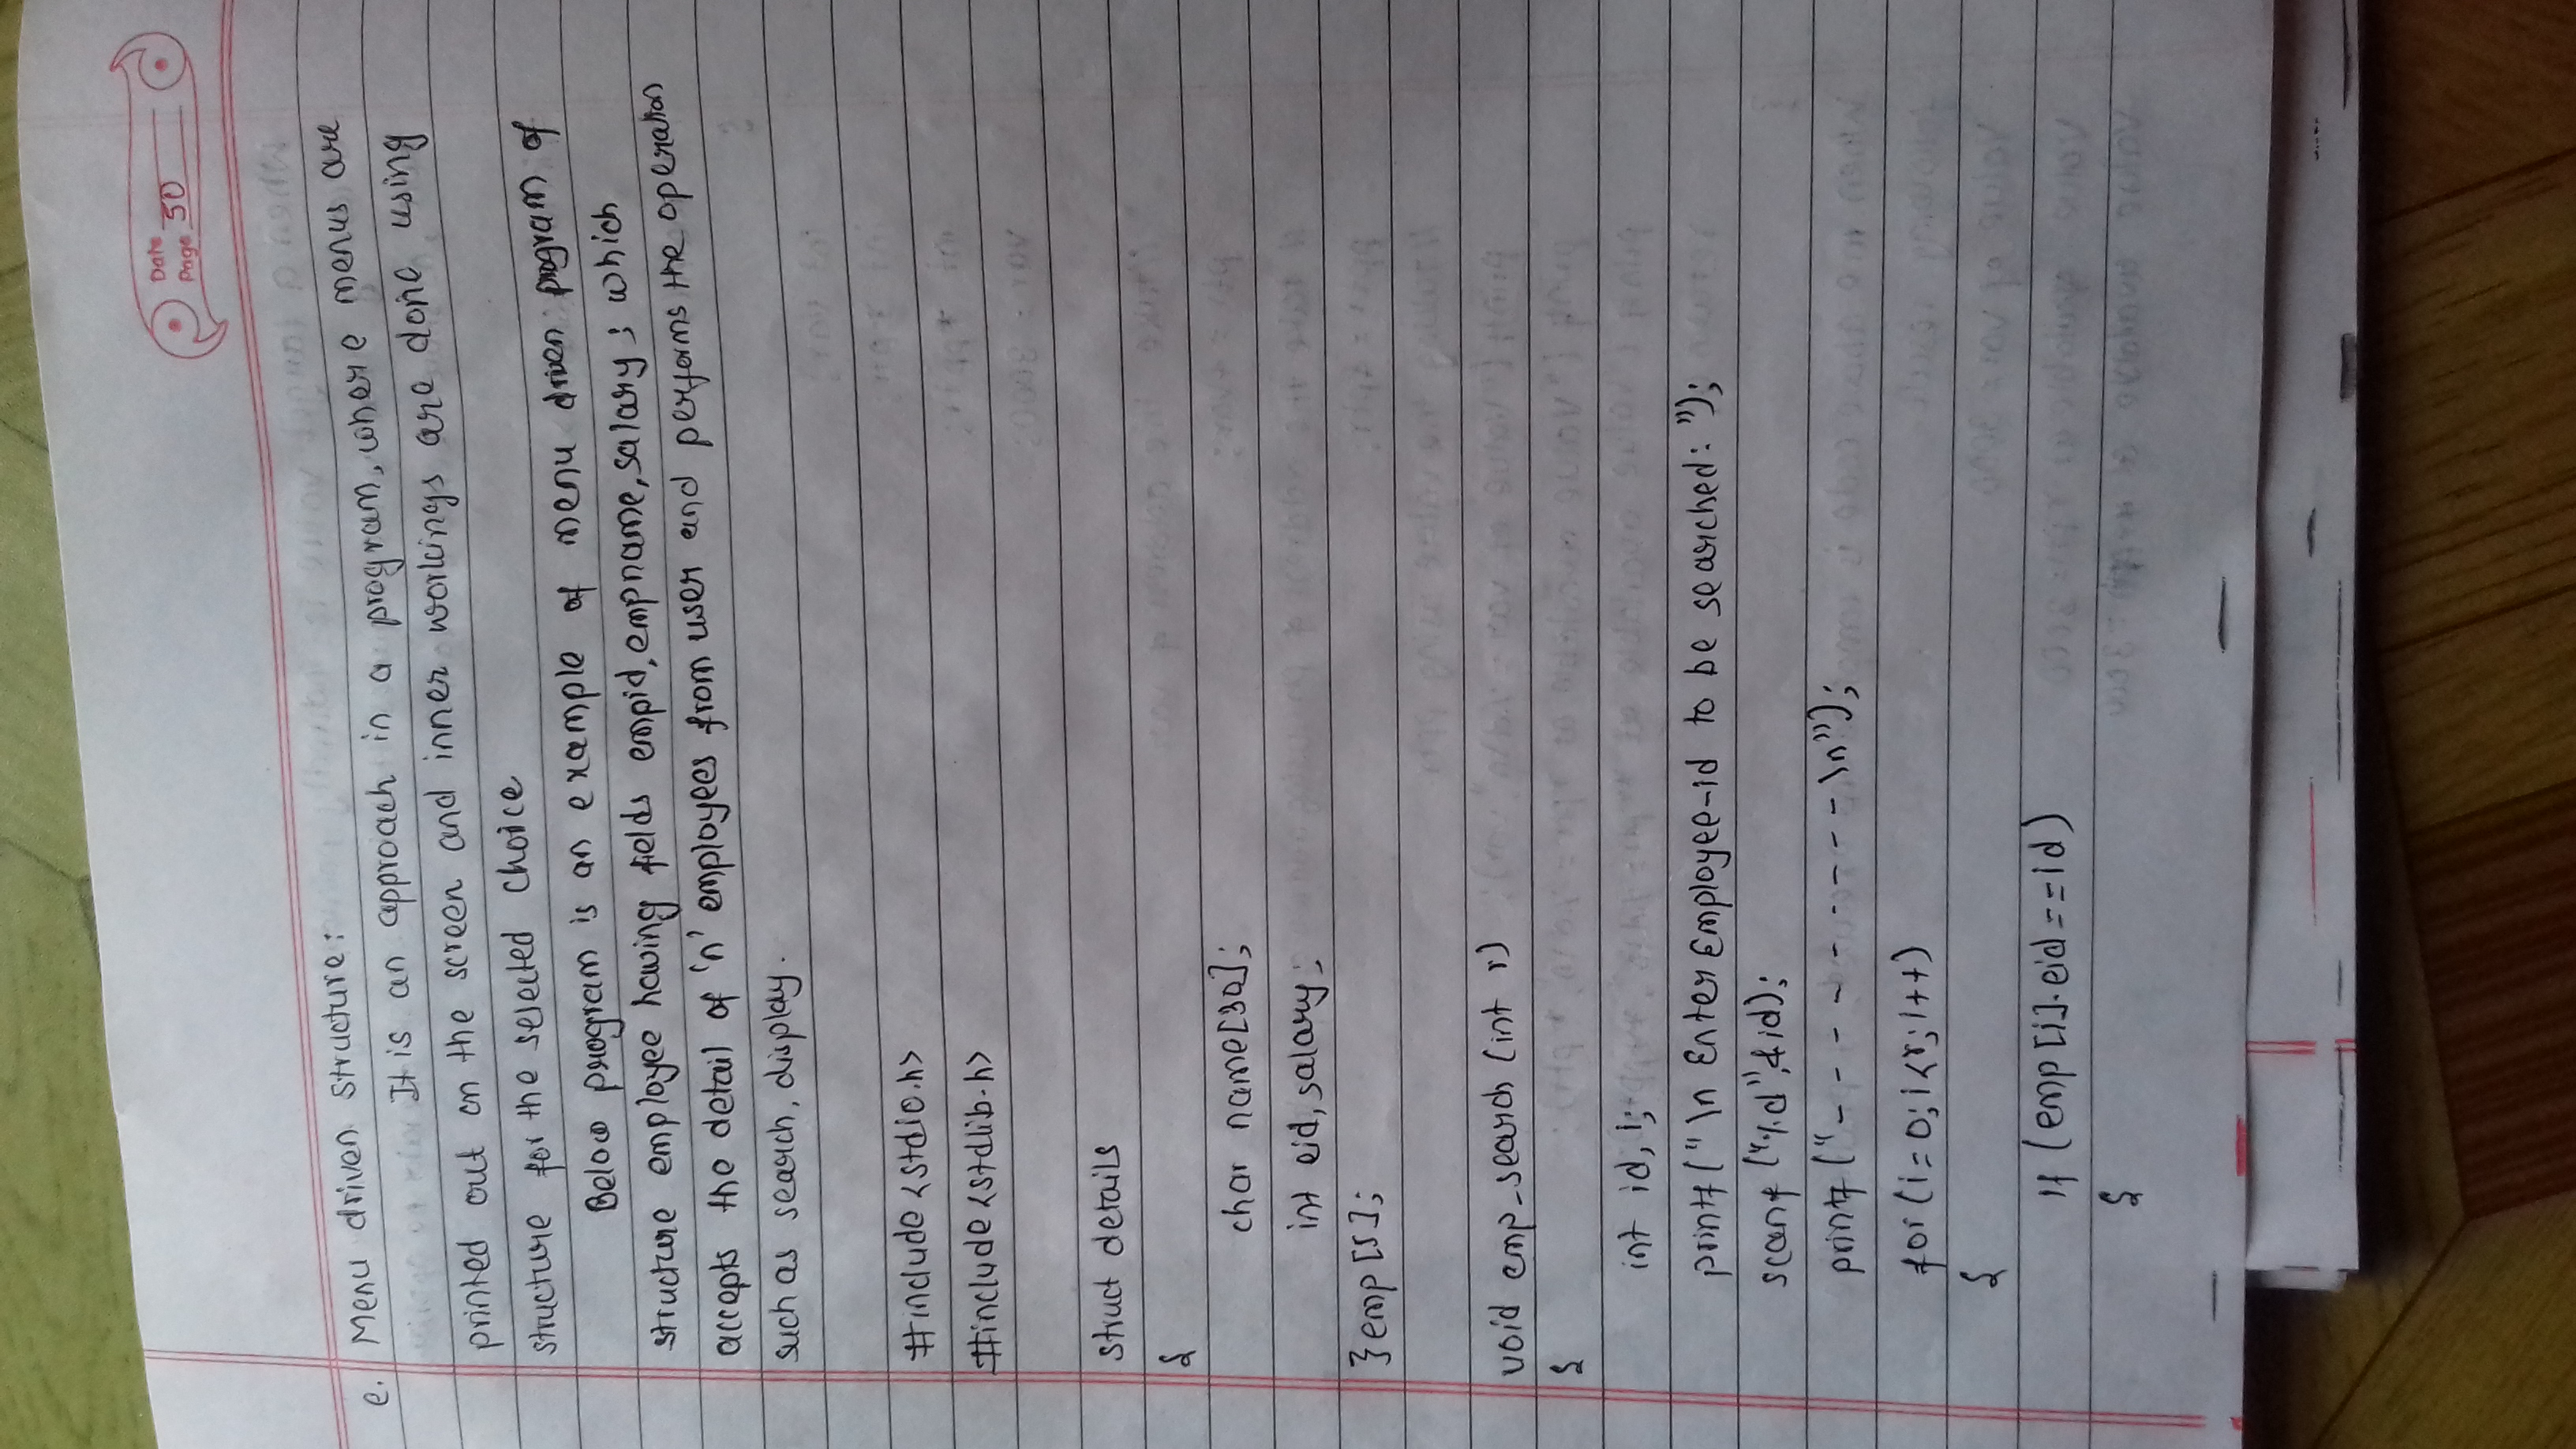 Date
Page 50
e. Menu driven structure:
It is an approach in a program, where menus are
printed out on the screen and inner workings are done using
structure for the selected choice
Below program is an example of menu driven program of
structure employee having fields empid, empname, salary; which
accepts the detail of 'n' employees from user and performs the operation
such as search, display.
#include <stdio.h>
#include <stdlib.h>
struct details
{
char name[30];
int eid, salary;
} emp [5];
void emp_search (int r)
{
int id, i;
printf ("\n Enter Employee-id to be searched: ");
scanf ("%d", &id);
printf ("- - - - - - - - - \n");
for (i=0; i<r; i++)
{
if (emp [i]. eid == id)
{